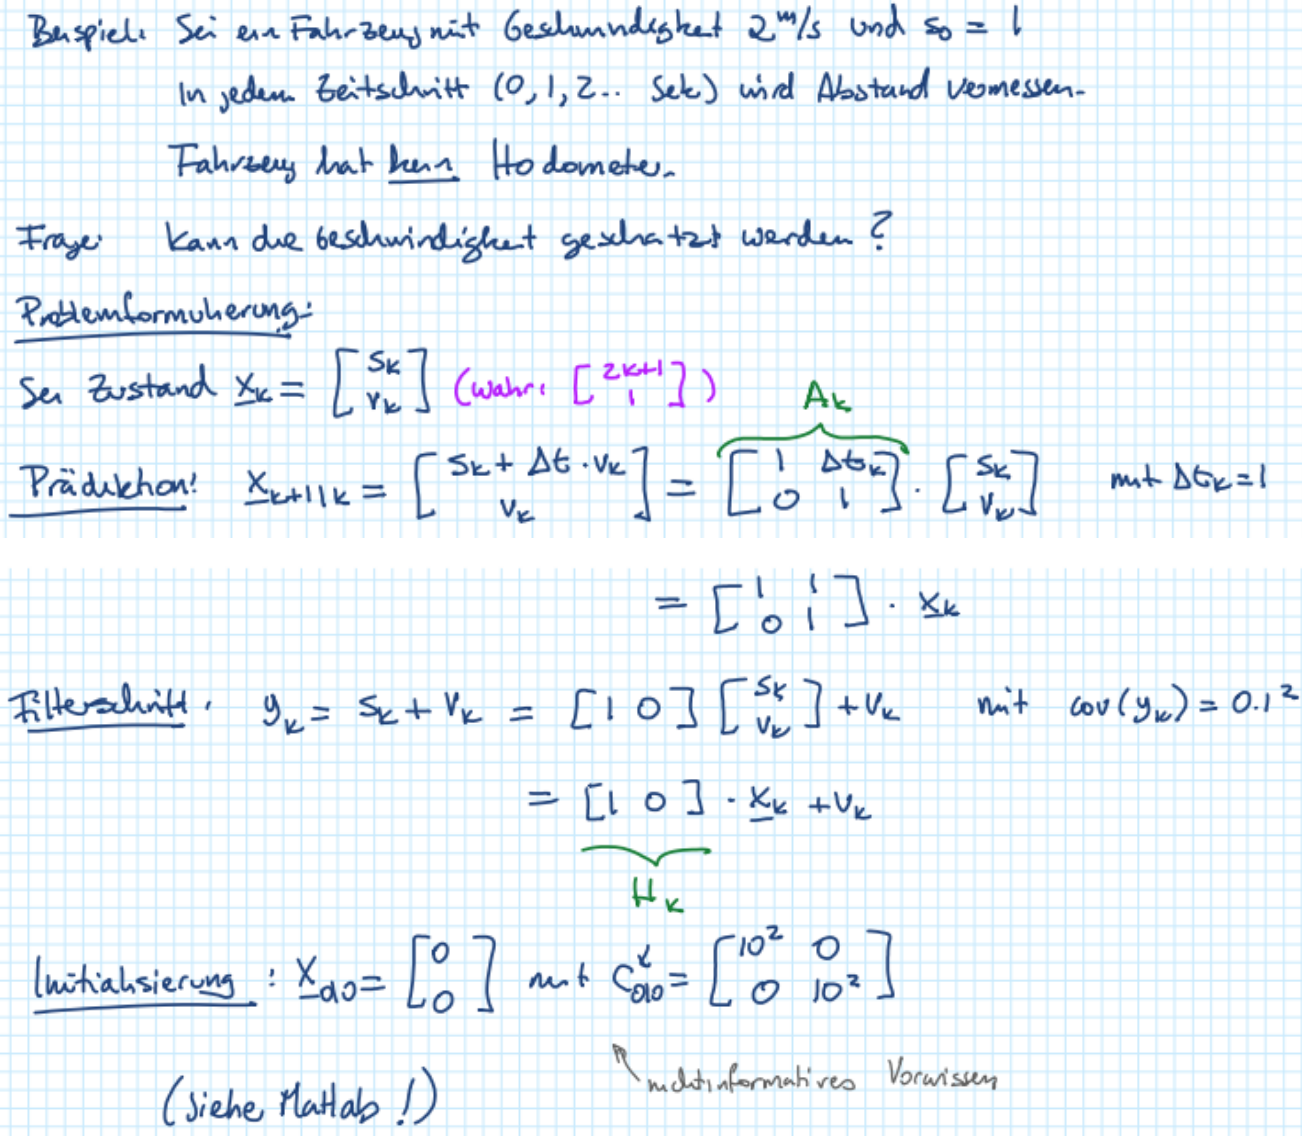 Beispiel: Sei ein Fahrzeug mit Geschwindigkeit 2 m/s und s₀ = 1
In jedem Zeitschritt (0, 1, 2.. Sek) wird Abstand vermessen.
Fahrzeug hat kein Hodometer.
Frage: Kann die Geschwindigkeit geschätzt werden?
Problemformulierung:
Sei Zustand x_k = [s_k; v_k] (wahr: [2k+1; 1])
A_k
Prädiktion: x_{k+1|k} = [s_k + Δt · v_k; v_k] = [1 Δt_k; 0 1] · [s_k; v_k] mit Δt_k = 1
= [1 1; 0 1] · x_k
Filterschritt: y_k = s_k + v_k = [1 0] [s_k; v_k] + v_k mit cov(y_k) = 0.1²
= [1 0] · x_k + v_k
H_k
Initialisierung: x_{0|0} = [0; 0] mit C^x_{0|0} = [10² 0; 0 10²]
nichtinformatives Vorwissen
(siehe Matlab!)